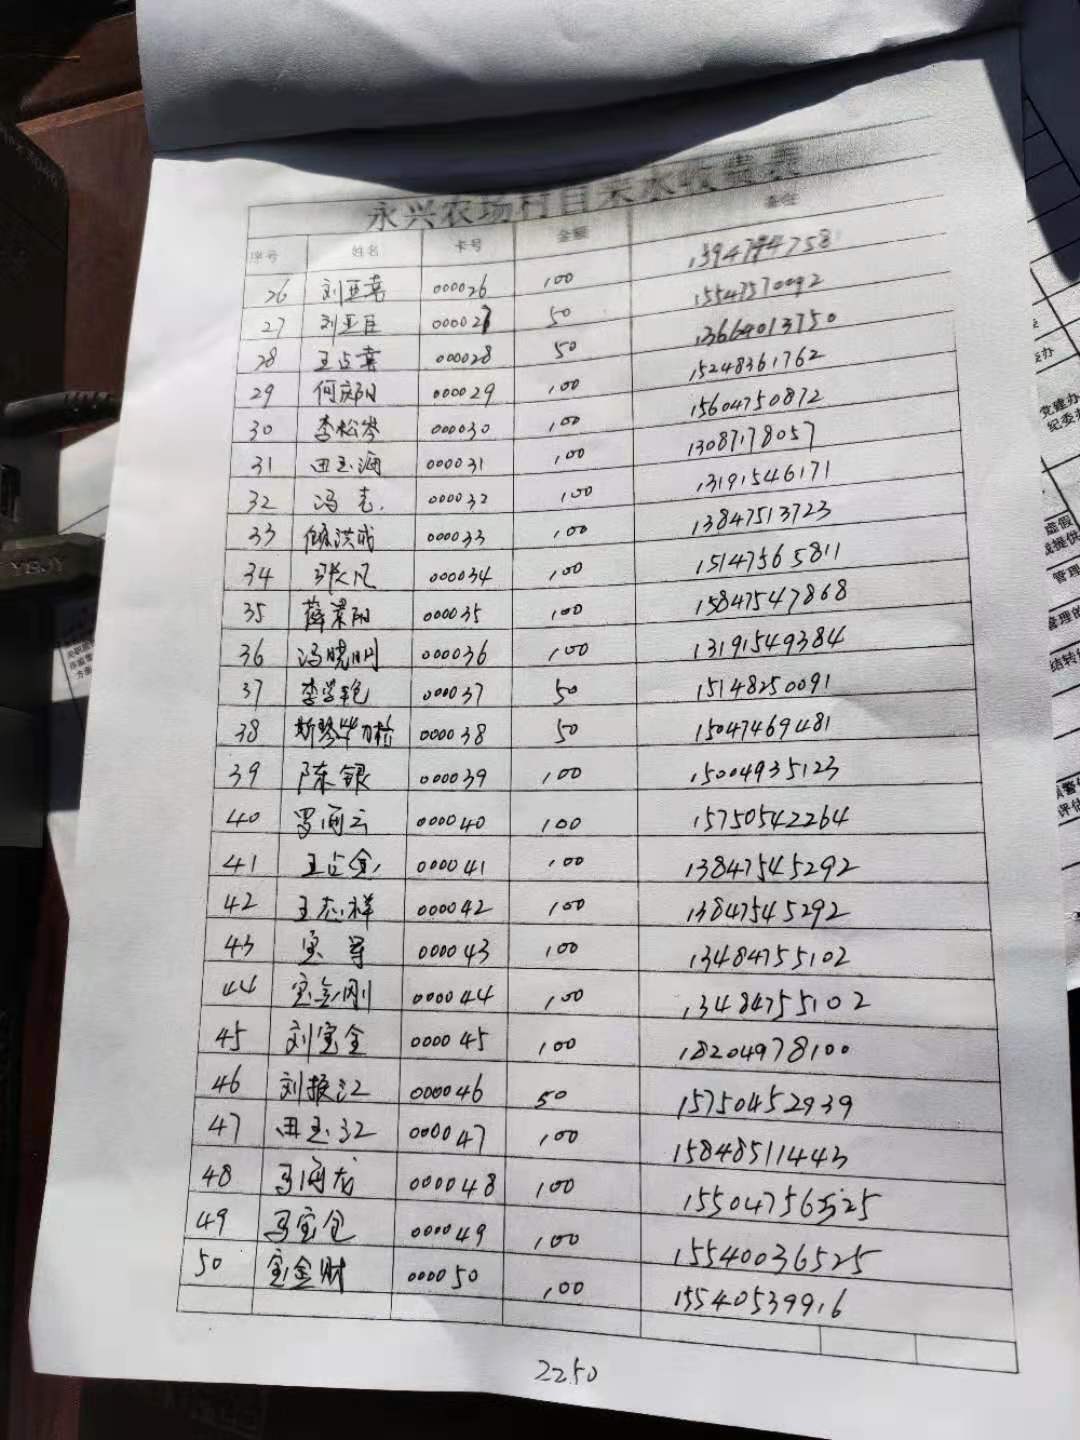 永兴农场村自来水收费表
序号 姓名 卡号 金额 备注
26 刘亚喜 000026 100 13947494758
27 刘亚臣 000027 50 15547570092
28 王占喜 000028 50 13664013750
29 何庆阳 000029 100 15248361762
30 李松岑 000030 100 15604750872
31 田玉海 000031 100 13087178057
32 冯志 000032 100 13191546171
33 洪成 000033 100 13847513723
34 张凡 000034 100 15147565811
35 薛景阳 000035 100 15847547868
36 冯晓明 000036 100 13191549384
37 李学艳 000037 50 15148250091
38 斯琴毕力格 000038 50 15047469481
39 陈银 000039 100 15004935123
40 罗海云 000040 100 15750542264
41 王占金 000041 100 13847545292
42 王志祥 000042 100 13847545292
43 宝军 000043 100 13484755102
44 宝金刚 000044 100 13484755102
45 刘宝全 000045 100 18204978100
46 刘振江 000046 50 15750452939
47 田玉江 000047 100 15848511443
48 马海龙 000048 100 15504756525
49 马宝仓 000049 100 15540036525
50 宝金财 000050 100 15540539916
2250
YBJY
党建办
纪委
管理